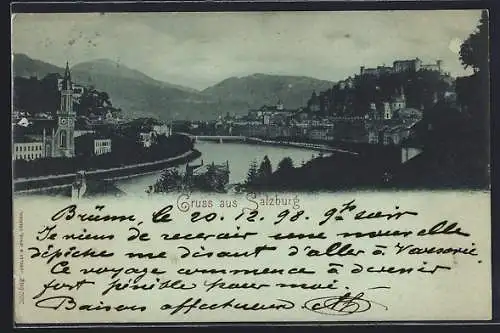 Gruss aus Salzburg
Brünn, le 20.12.98. 9h soir
Je viens de recevoir une nouvelle
dépêche me disant d'aller à Varsovie.
Ce voyage commence à devenir
fort pénible pour moi.
Baisers affectueux.